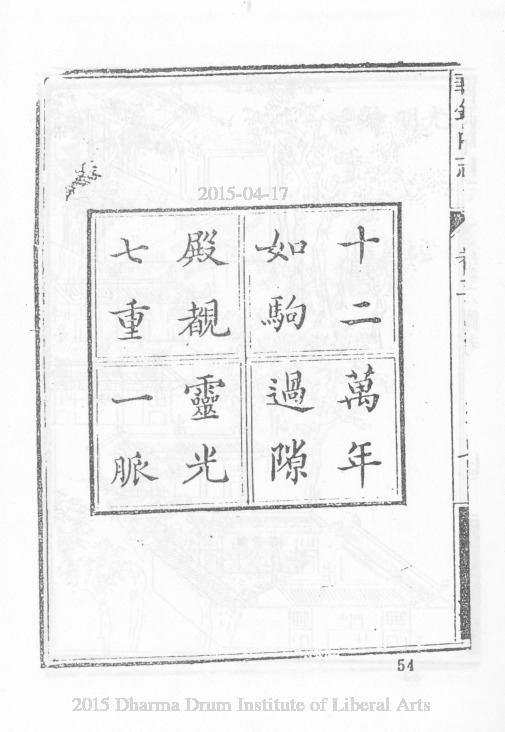 2015-04-17
十二萬年
如駒過隙
殿覩靈光
七重一脈
54
2015 Dharma Drum Institute of Liberal Arts